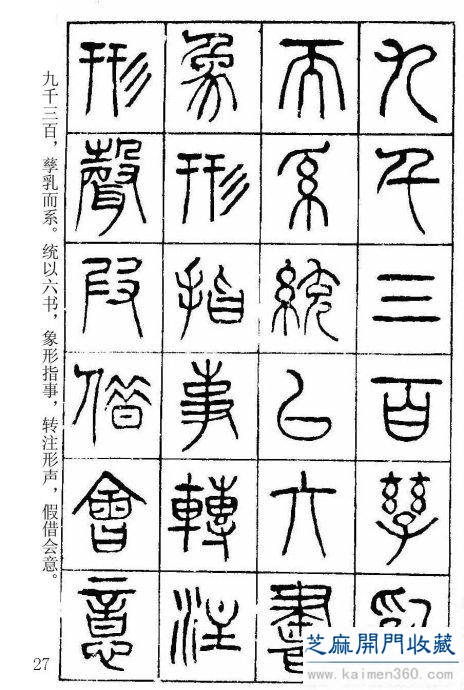 九千三百孳乳
而系統㠯六書
象形指事轉注
形聲叚借會意
九千三百，孳乳而系。统以六书，象形指事，转注形声，假借会意。
27
芝麻開門收藏
www.kaimen360.com